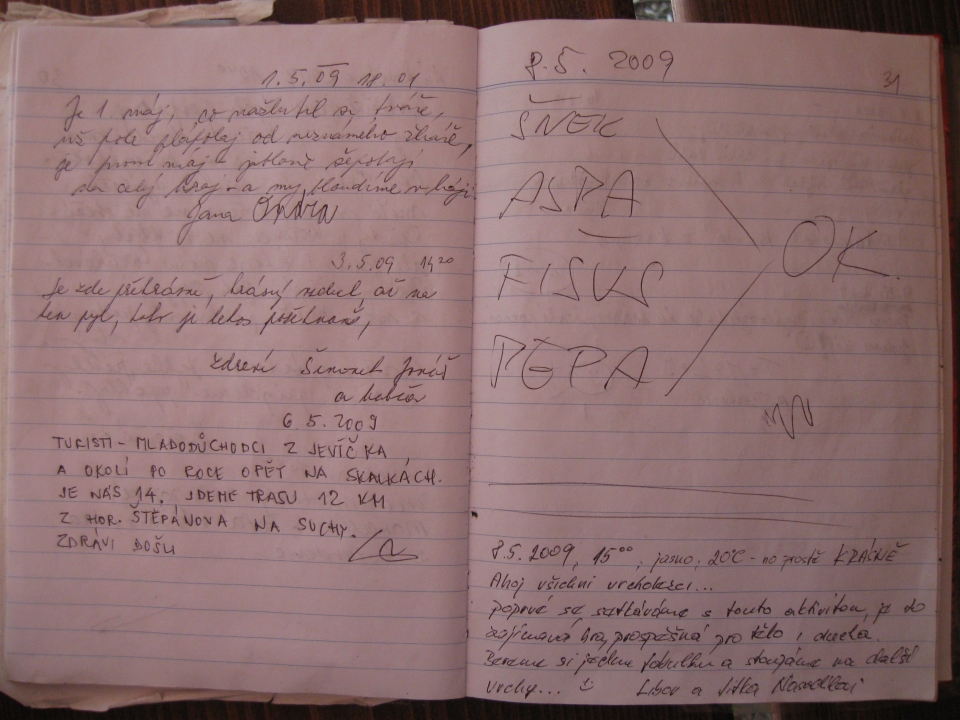 1.5.09 18.01
Je 1 máj, po tváře,
už pole plápolaj od neznámého žháře,
je první máj a jabloně šepotají
na celý kraj - a my bloudíme v háji
Jana Ondra
3.5.09 14 20
Je zde překrásně, krásný až na
ten pyl, je letos
zdraví Šimonek Jonáš
a babča
6.5.2009
TURISTI - MLADODŮCHODCI Z JEVÍČKA
A OKOLÍ PO ROCE OPĚT NA SKALKÁCH.
JE NÁS 14. JDEME TRASU 12 KM
Z HOR. ŠTĚPÁNOVA NA SUCHÝ.
ZDRÁVI DOŠLI
8.5. 2009
31
ŠNEK
ASPA
FISUS
PEPA
OK.
8.5.2009, 15 00, jasno, 20°C - no prostě KRÁSNĚ
Ahoj všichni vrcholaci...
poprvé se setkáváme s touto aktivitou, je to
zajímavá hra, prospěšná pro tělo i ducha.
Bereme si jednu tabulku a stoupáme na další
vrchy... Libor a Jitka